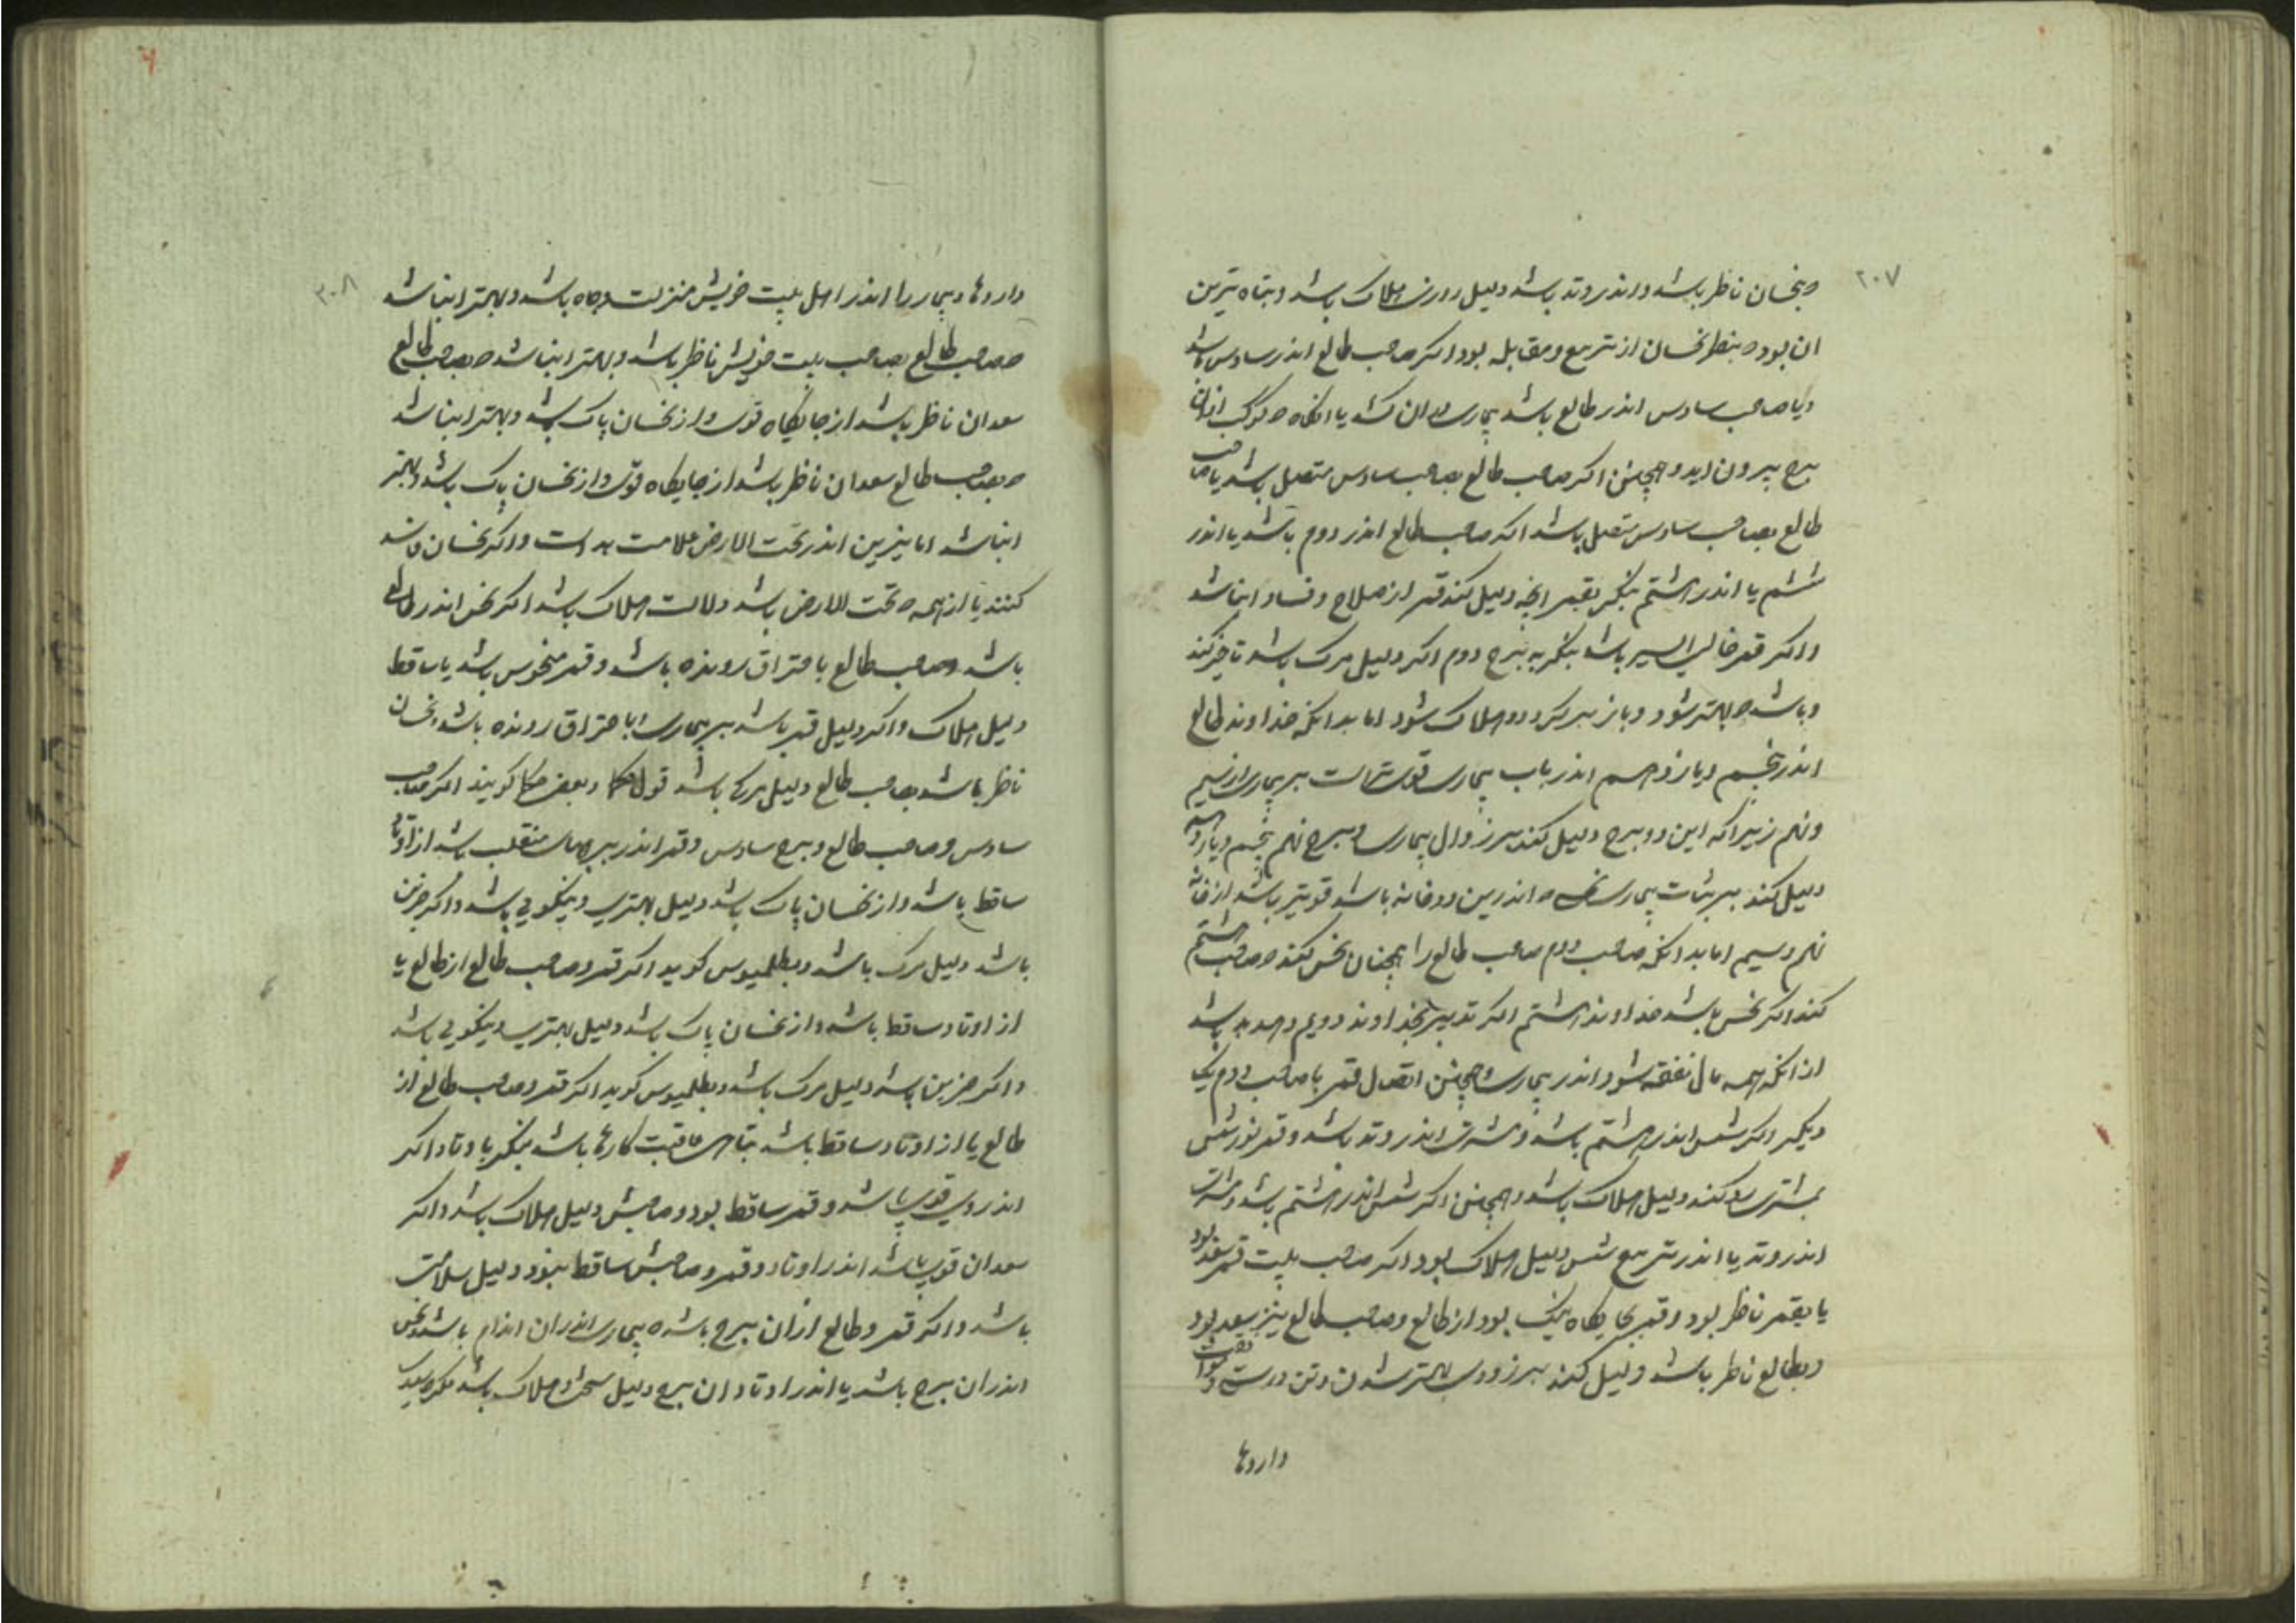 ۲۰۷
و بنحسان ناظر باشد و اندر وتد باشد دلیل روز هلاک باشد و تباه ترین
ان بود ه بنظر نحسان از تربیع و مقابله بود اکر صاحب طالع اندر سادس باشد
و یا صاحب سادس اندر طالع باشد بیماری ان کشد یا انکاه ه کوکب از ان
برج بیرون اید و همچنین اکر صاحب طالع بصاحب سادس متصل باشد یا صاحب
طالع بصاحب سادس متصل باشد اکر صاحب طالع اندر دوم باشد یا اندر
ششم یا اندر هشتم بنکر بقمر انچه دلیل کند قمر از صلاح و فساد انباشد
و اکر قمر خالی السیر باشد بنکر به برج دوم اکر دلیل مرک باشد تاخیر کند
و باشد ه بهتر شود و باز بر کردد و هلاک شود اما بدانکه خداوند طالع
اندر پنجم و یازدهم اندر باب بیماری قوی تراست بر بیماری از سیم
و نهم زیرا که این دو برج دلیل کنند بر زوال بیماری و برج نهم پنجم و یازدهم
دلیل کنند بر ثبات بیماری نحس ه اندرین دو خانه باشد قویتر باشد از خانه
نهم و سیم اما بدانکه صاحب دوم صاحب طالع را همچنان نحس کند ه صاحب هشتم
کند اکر نحس باشد خداوند هشتم اکر تدبیر بخداوند دویم دهد بد باشد
از انکه همه مال نفقه شود اندر بیماری و همچنین اتصال قمر با صاحب دوم یک
دیکر و اکر شمس اندر هشتم باشد و مشتری اندر وتد باشد و قمر نور شمس
بمشتری رد کند دلیل هلاک باشد و همچنین اکر شمس اندر هشتم باشد و مشتری
اندر وتد یا اندر تربیع شمس دلیل هلاک بود اکر صاحب بیت قمر سعد بود
یا بقمر ناظر بود و قمر بجایکاه نیک بود از طالع و صاحب طالع نیز سعد بود
و بطالع ناظر باشد دلیل کند بر زودی بهتر شدن و تن درستی و
داروها
۲۰۸
داروها و بیمار را اندر اهل بیت خویش منزلت و جاه باشد و بهتر انباشد
ه صاحب طالع بصاحب بیت خویش ناظر باشد و بهتر انباشد ه بصاحب طالع
سعدان ناظر باشد از جایکاه قوی و از نحسان پاک باشد و بهتر انباشد
ه بصاحب طالع سعدان ناظر باشد از جایکاه قوی و از نحسان پاک باشد و بهتر
انباشد اما نیرین اندر تحت الارض علامت بد است و اکر نحسان فاسد
کنند یا از همه ه تحت الارض باشد دلالت هلاک باشد اکر نحس اندر طالع
باشد و صاحب طالع باحتراق رونده باشد و قمر منحوس باشد یا ساقط
دلیل هلاک و اکر دلیل قمر باشد بر بیماری باحتراق رونده باشد و نحسان
ناظر باشد بصاحب طالع دلیل مرک باشد قول حکما و بعضی حکما کویند اکر صاحب
سادس و صاحب طالع و برج سادس و قمر اندر برجهای منقلب باشد از اوتاد
ساقط باشد و از نحسان پاک باشد دلیل بهتری و نیکویی باشد و اکر جز این
باشد دلیل مرک باشد و بطلمیوس کوید اکر قمر و صاحب طالع از طالع یا
از اوتاد ساقط باشد و از نحسان پاک باشد دلیل بهتری و نیکویی باشد
و اکر جز این باشد دلیل مرک باشد و بطلمیوس کوید اکر قمر و صاحب طالع از
طالع یا از اوتاد ساقط باشد تباهی عاقبت کارها باشد بنکر باوتاد اکر
اندر وی قوی باشد و قمر ساقط بود و صاحبش دلیل هلاک باشد و اکر
سعدان قوی باشد اندر اوتاد و قمر و صاحبش ساقط نبود دلیل سلامتی
باشد و اکر قمر و طالع از ان برج باشد ه بیماری اندر ان اندام باشد و نحس
اندر ان برج باشد یا اندر اوتاد ان برج دلیل سختی و هلاک باشد مکر ه سعد